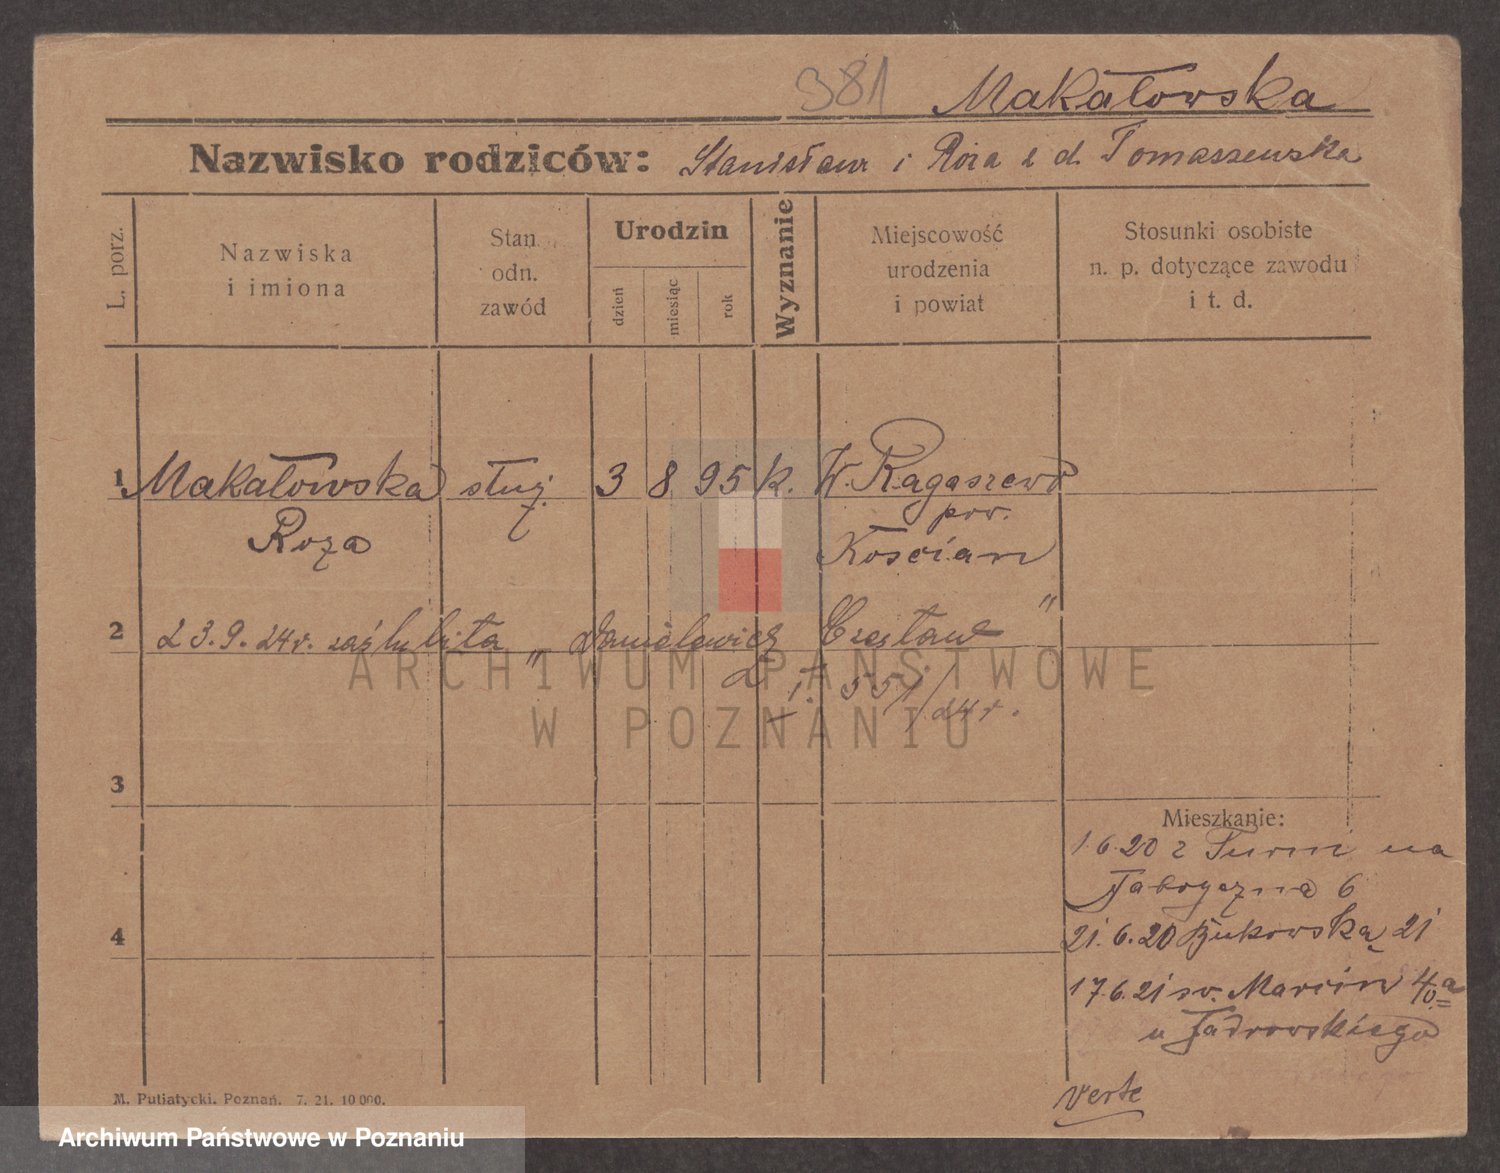 381 Makałowska
Nazwisko rodziców: Stanisław i Róża z d. Tomaszewska
L. porz.
Nazwiska
i imiona
Stan
odn.
zawód
Urodzin
dzień
miesiąc
rok
Wyznanie
Miejscowość
urodzenia
i powiat
Stosunki osobiste
n. p. dotyczące zawodu
i t. d.
1 Makałowska służ. 3 8 95 k. W. Ragaszewo
Roza
pow.
Kościan
2 23.9.24r. zaślubiła " Danielewicz Czesław "
551/24r.
3
Mieszkanie:
1.6.20 z Turm na
Fabryczna 6
4
21.6.20 Bukowska 21
17.6.21 św. Marcin
u
verte
M. Putiatycki. Poznań. 7. 21. 10 000.
ARCHIWUM PAŃSTWOWE
W POZNANIU
Archiwum Państwowe w Poznaniu